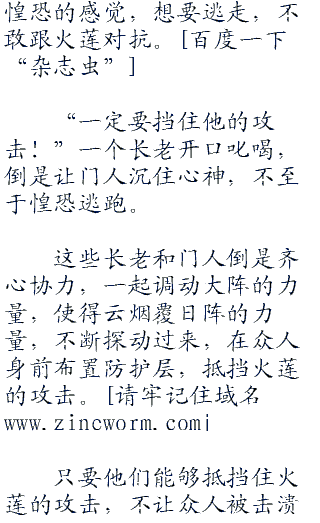 惶恐的感觉，想要逃走，不
敢跟火莲对抗。[百度一下
“杂志虫”]
“一定要挡住他的攻
击！”一个长老开口叱喝，
倒是让门人沉住心神，不至
于惶恐逃跑。
这些长老和门人倒是齐
心协力，一起调动大阵的力
量，使得云烟覆日阵的力
量，不断探动过来，在众人
身前布置防护层，抵挡火莲
的攻击。[请牢记住域名
www.zincworm.com|
只要他们能够抵挡住火
莲的攻击，不让众人被击溃